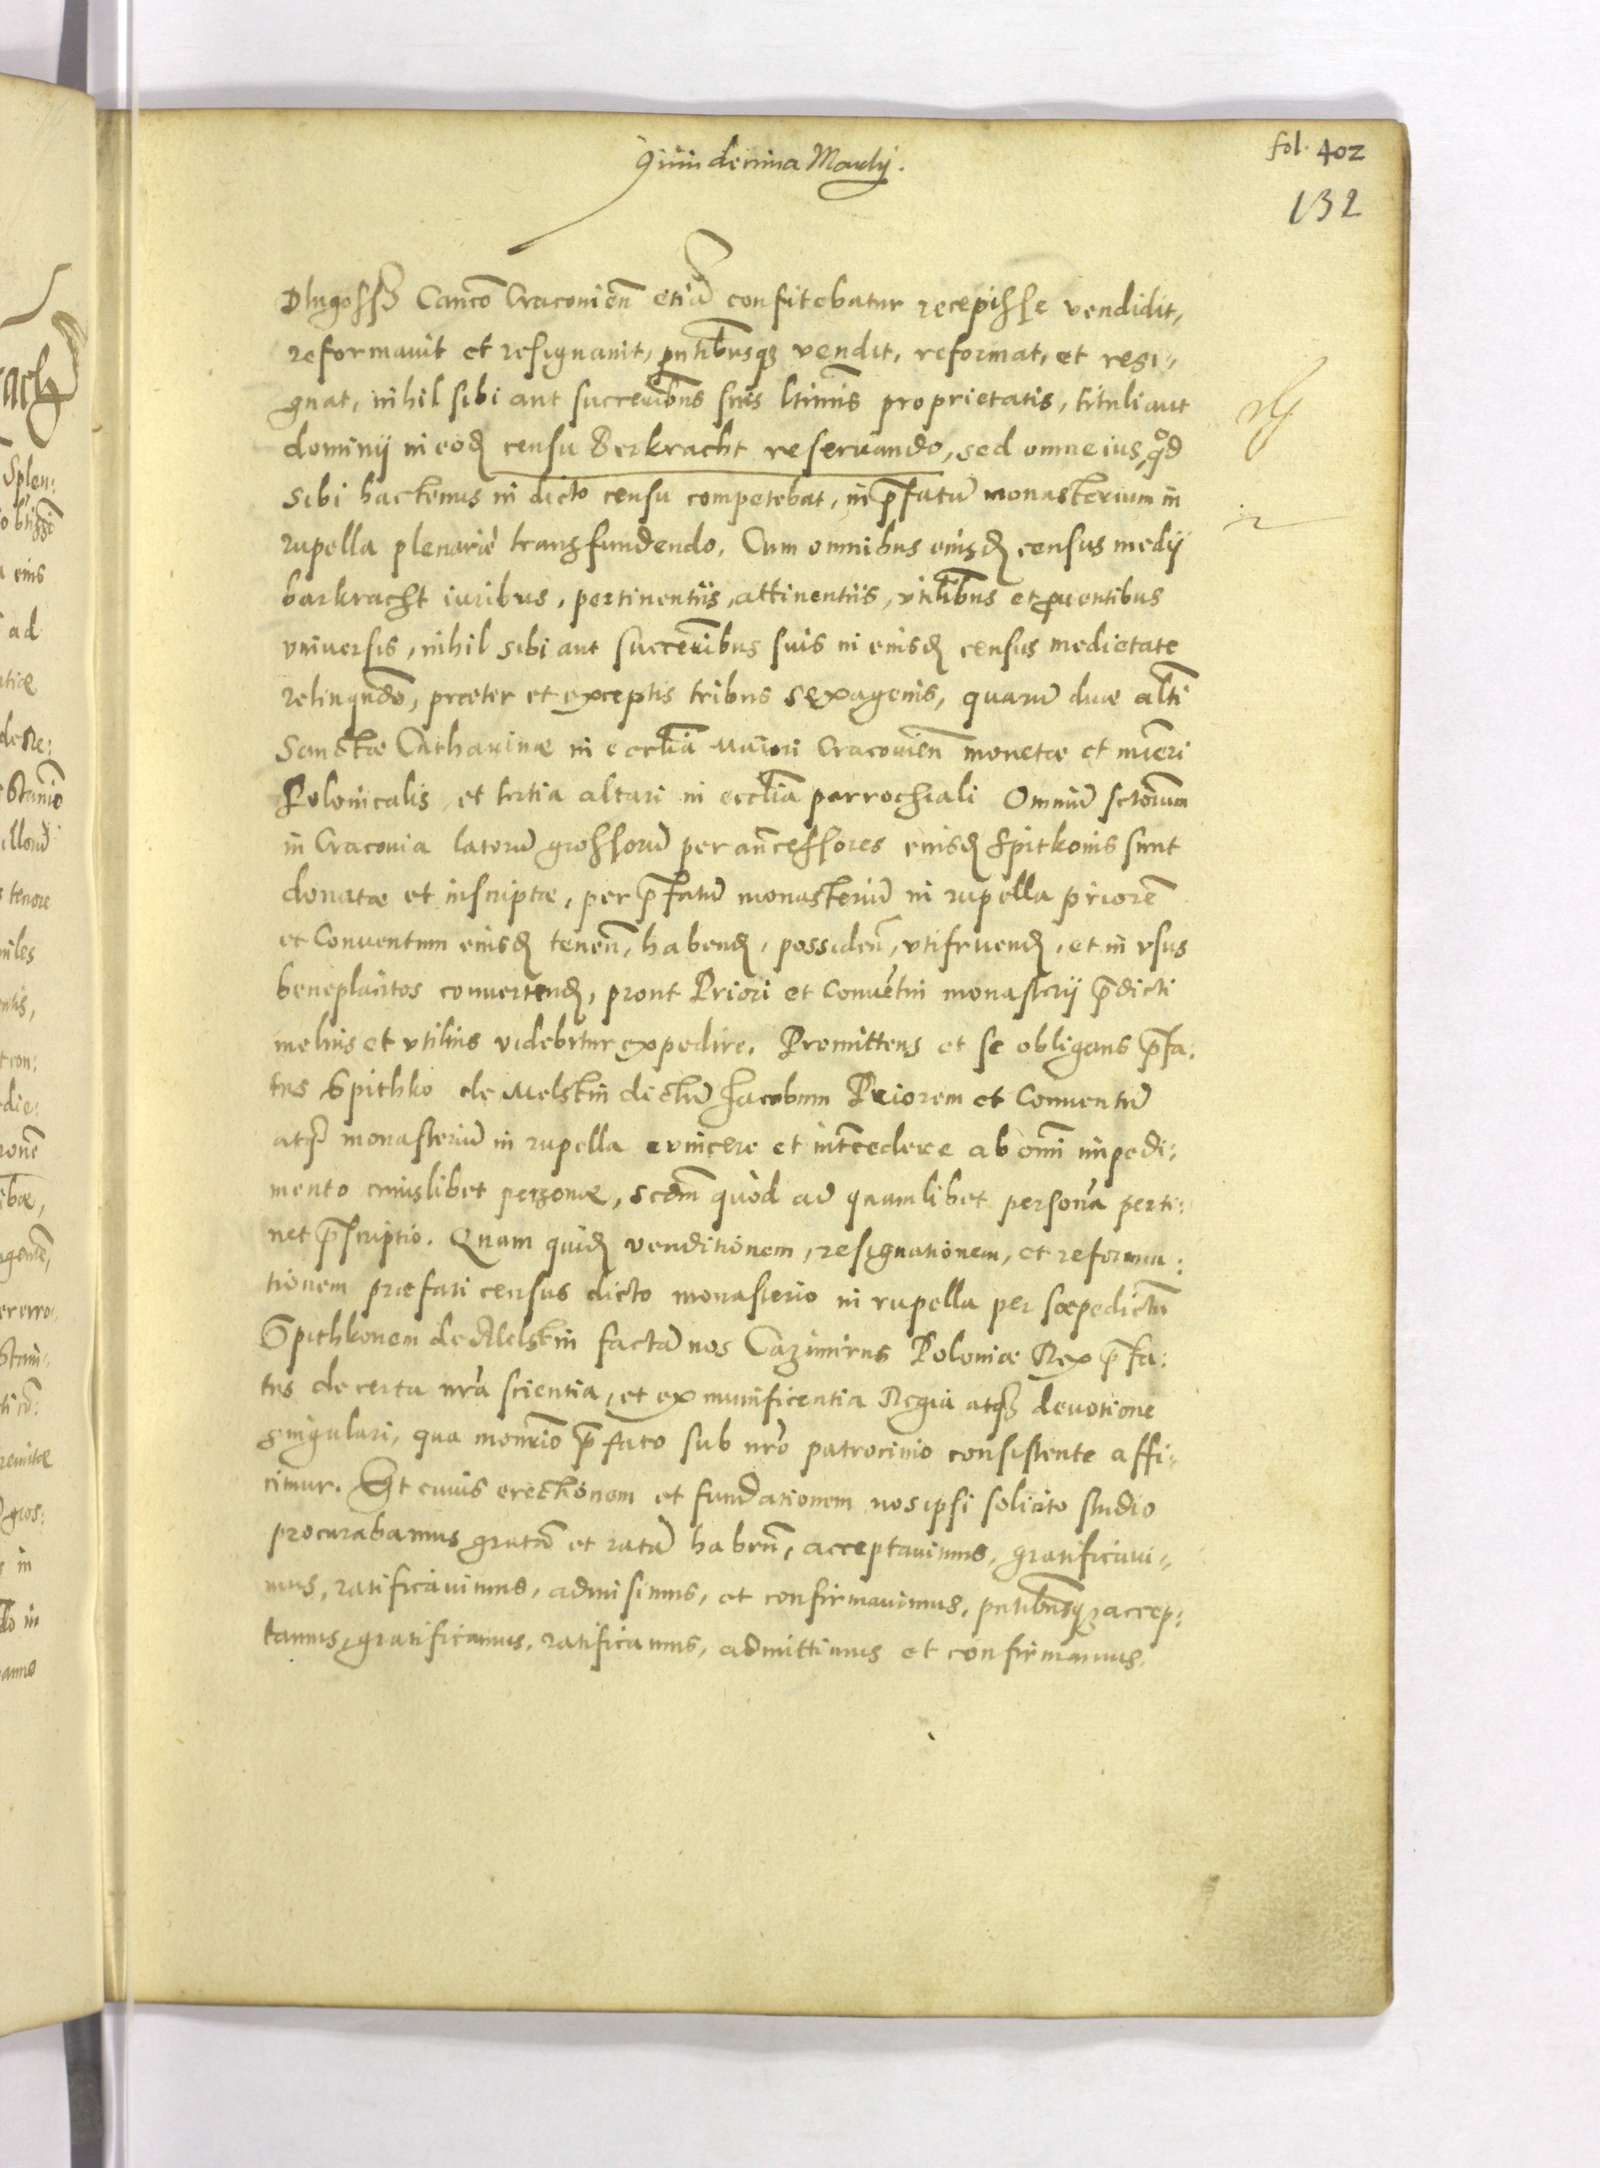 quindecima Martij.
fol. 402
132
Dlugossz Canco Cracovien̄ etiā confitebatur recepisse vendidit,
reformavit et resignavit, pn̄tibusqȝ vendit, reformat, et resi„
gnat, nihil sibi aut succerib̄us suis ltimis proprietatis, tituli aut
dominij in eod̨ censu Berkracht reservando, sed omne ius, qd
sibi hactenus in dicto censu competebat, in p̄fatū monasterium in
rupella plenariè transfundendo. Cum omnibus eiusd̨ census medij
barkracht iuribus, pertinentiis, attinentiis, vtilib̄us et pventibus
vniversis, nihil sibi aut succerib̄us suis in eiusd̨ census medietate
relinqndo, præter et exceptis tribus sexagenis, quarū duæ alti
Sanctæ Catharinæ in ecclīa Maiori Cracovien̄ monetæ et nūeri
Polonicalis et tertia altari in ecclīa parrochiali Omniū sctorum
in Cracovia latorū grossorū per an̄cessores eiusd̨ Spitkonis sunt
donatæ et inscriptæ, per p̄fatū monasteriū in rupella priorē
et Conventum eiusd̨ tenen̄, habend̨, possiden̄, vtifruend̨, et in vsus
beneplacitos convertend̨, prout Priori et Conventui monasterij p̄dicti
melius et vtilius videbitur expedire. Promittens et se obligans p̄fa:
tus Spithko de Melstin dictū Jacobum Priorem et Conventū
atqȝ monasteriū in rupella evincere et intcedere ab omi impedi:
mento cuiuslibet personæ, scdm quòd ad quamlibet personā perti:
net p̄scriptio. Quam quid̨ venditionem, resignationem, et reforma:
tionem præfati census dicto monasterio in rupella per sæpedictū
Spithkonem de Melstin factā nos Cazimirus Poloniæ Rex p̄fa:
tus de certa nrā scientia, et ex munificentia Regia atqȝ devotione
singulari, qua monrīo p̄fato sub nrō patrocinio consistente affi„
cimur. Et cuius erectionem et fundationem nos ipsi solicito studio
procurabamus gratā et ratā habēn̄, acceptavimus, gratificavi„
mus, ratificavimus, admisimus, et confirmavimus, pn̄tibusqȝ accep:
tamus, gratificamus, ratificamus, admittimus et confirmamus.